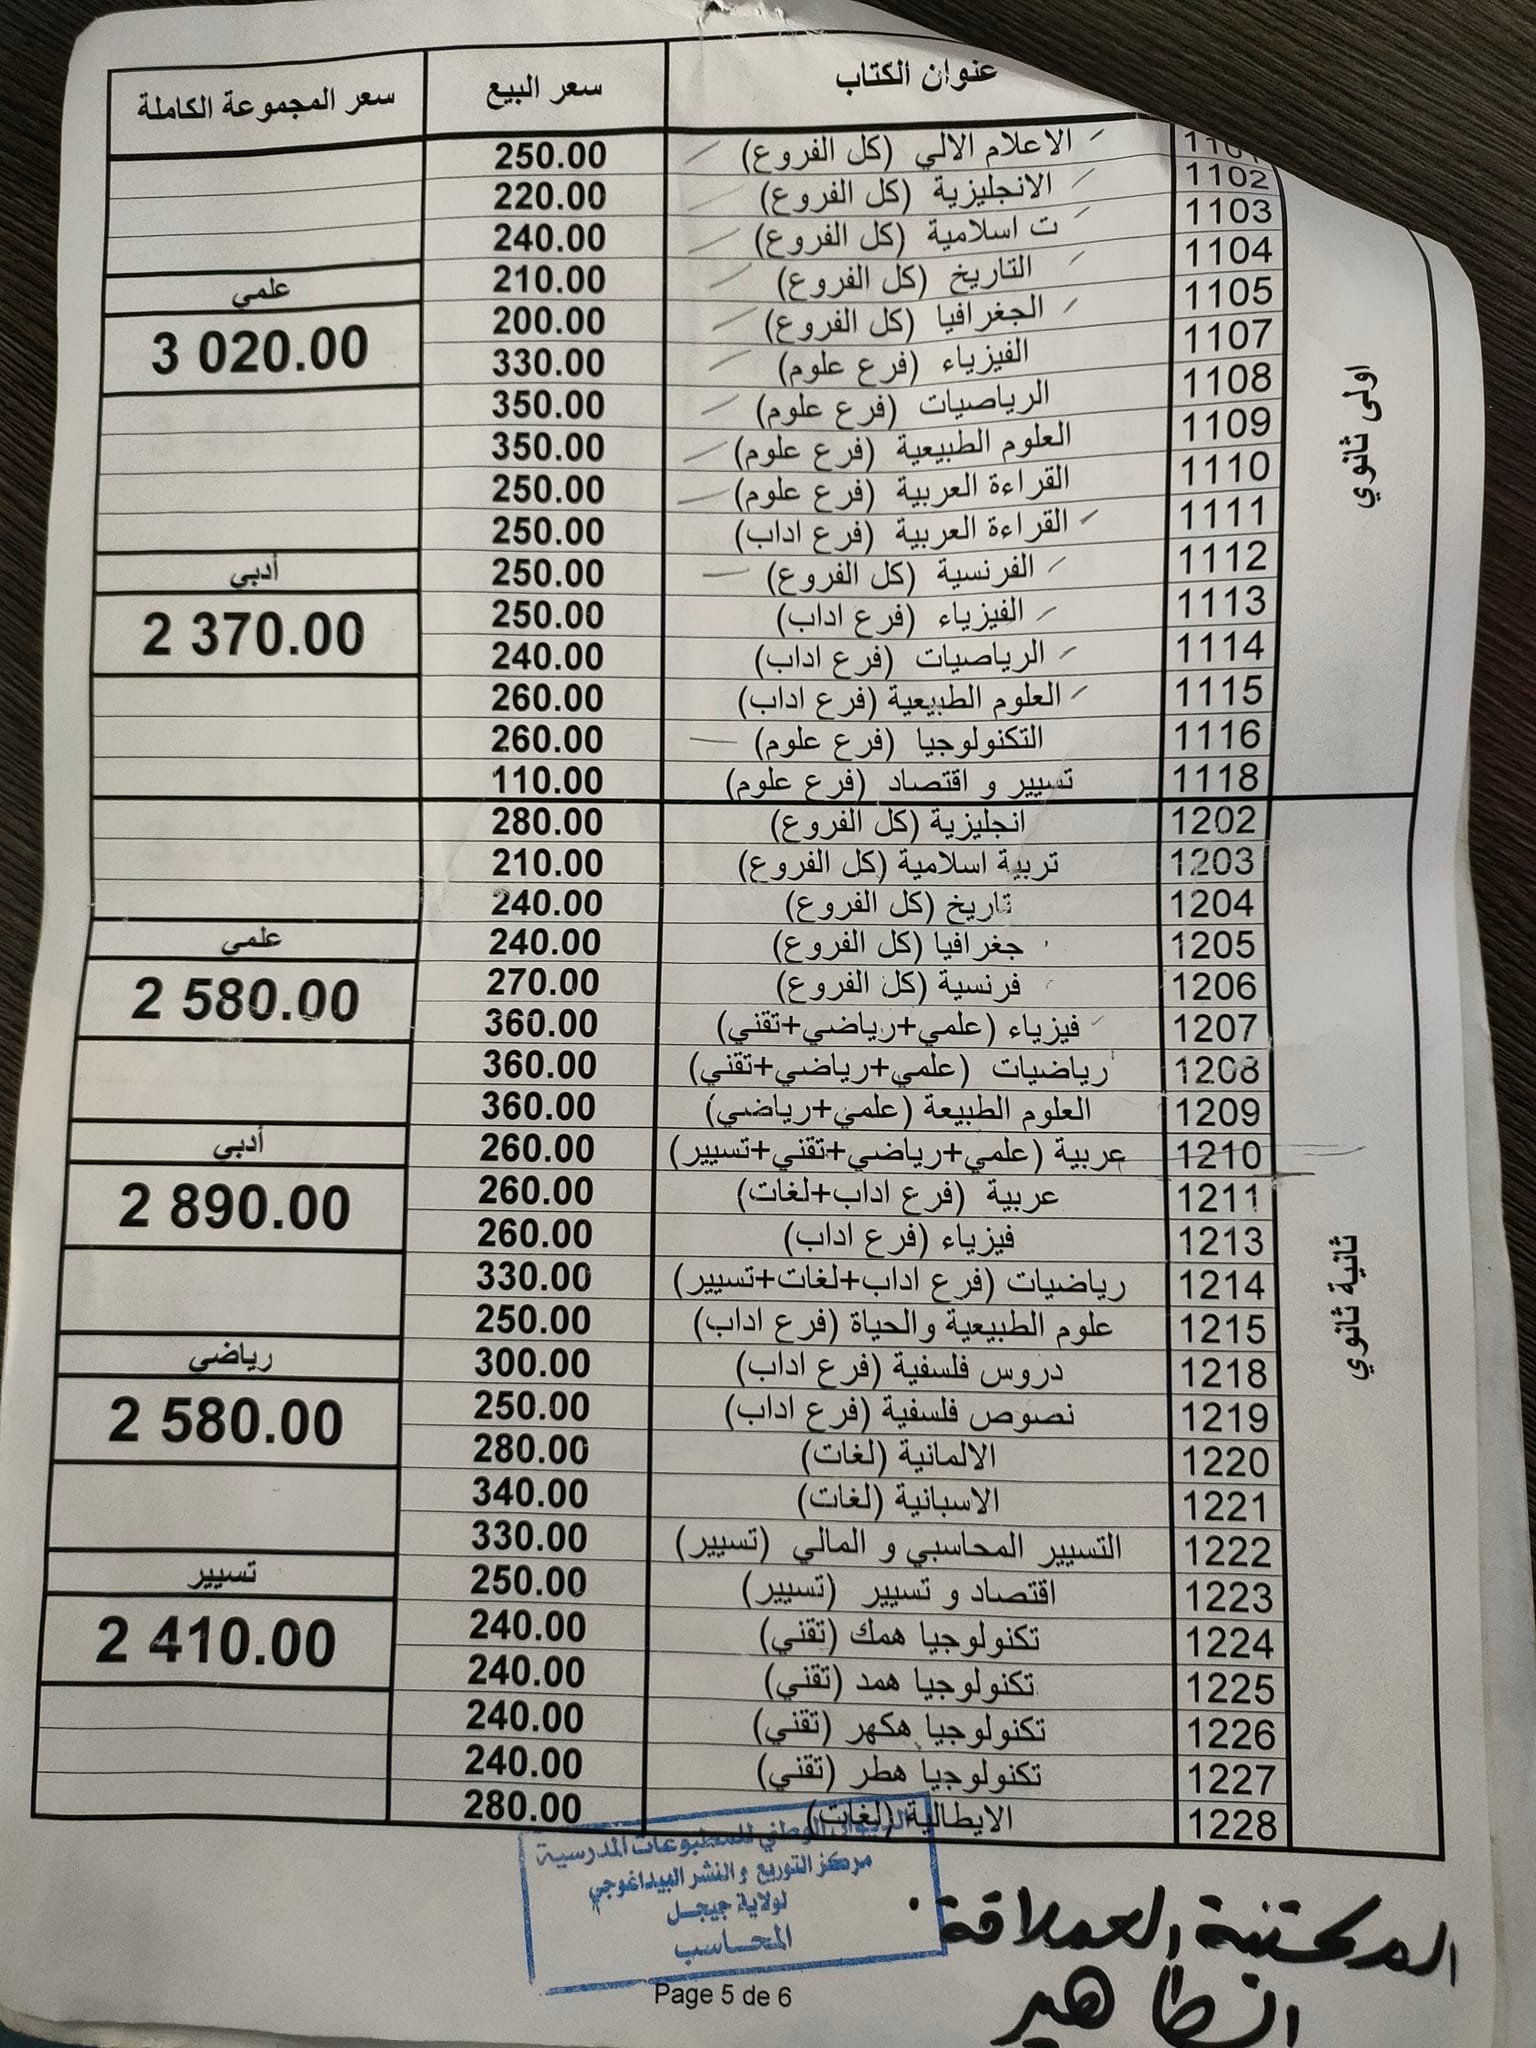 عنوان الكتاب سعر البيع سعر المجموعة الكاملة
اولى ثانوي
1101 الاعلام الالي (كل الفروع) 250.00
1102 الانجليزية (كل الفروع) 220.00
1103 ت اسلامية (كل الفروع) 240.00
1104 التاريخ (كل الفروع) 210.00
علمي
1105 الجغرافيا (كل الفروع) 200.00
3 020.00
1107 الفيزياء (فرع علوم) 330.00
1108 الرياضيات (فرع علوم) 350.00
1109 العلوم الطبيعية (فرع علوم) 350.00
1110 القراءة العربية (فرع علوم) 250.00
1111 القراءة العربية (فرع اداب) 250.00
1112 الفرنسية (كل الفروع) 250.00
أدبي
1113 الفيزياء (فرع اداب) 250.00
2 370.00
1114 الرياضيات (فرع اداب) 240.00
1115 العلوم الطبيعية (فرع اداب) 260.00
1116 التكنولوجيا (فرع علوم) 260.00
1118 تسيير و اقتصاد (فرع علوم) 110.00
ثانية ثانوي
1202 انجليزية (كل الفروع) 280.00
1203 تربية اسلامية (كل الفروع) 210.00
1204 تاريخ (كل الفروع) 240.00
1205 جغرافيا (كل الفروع) 240.00
علمي
1206 فرنسية (كل الفروع) 270.00
2 580.00
1207 فيزياء (علمي+رياضي+تقني) 360.00
1208 رياضيات (علمي+رياضي+تقني) 360.00
1209 العلوم الطبيعة (علمي+رياضي) 360.00
1210 عربية (علمي+رياضي+تقني+تسيير) 260.00
أدبي
1211 عربية (فرع اداب+لغات) 260.00
2 890.00
1213 فيزياء (فرع اداب) 260.00
1214 رياضيات (فرع اداب+لغات+تسيير) 330.00
1215 علوم الطبيعية والحياة (فرع اداب) 250.00
1218 دروس فلسفية (فرع اداب) 300.00
رياضي
1219 نصوص فلسفية (فرع اداب) 250.00
2 580.00
1220 الالمانية (لغات) 280.00
1221 الاسبانية (لغات) 340.00
1222 التسيير المحاسبي و المالي (تسيير) 330.00
1223 اقتصاد و تسيير (تسيير) 250.00
تسيير
1224 تكنولوجيا همك (تقني) 240.00
2 410.00
1225 تكنولوجيا همد (تقني) 240.00
1226 تكنولوجيا هكهر (تقني) 240.00
1227 تكنولوجيا هطر (تقني) 240.00
1228 الايطالية (لغات) 280.00
الديوان الوطني للمطبوعات المدرسية
مركز التوزيع و النشر البيداغوجي
لولاية جيجل
المحاسب
المكتبة العملاقة
الطاهير
Page 5 de 6